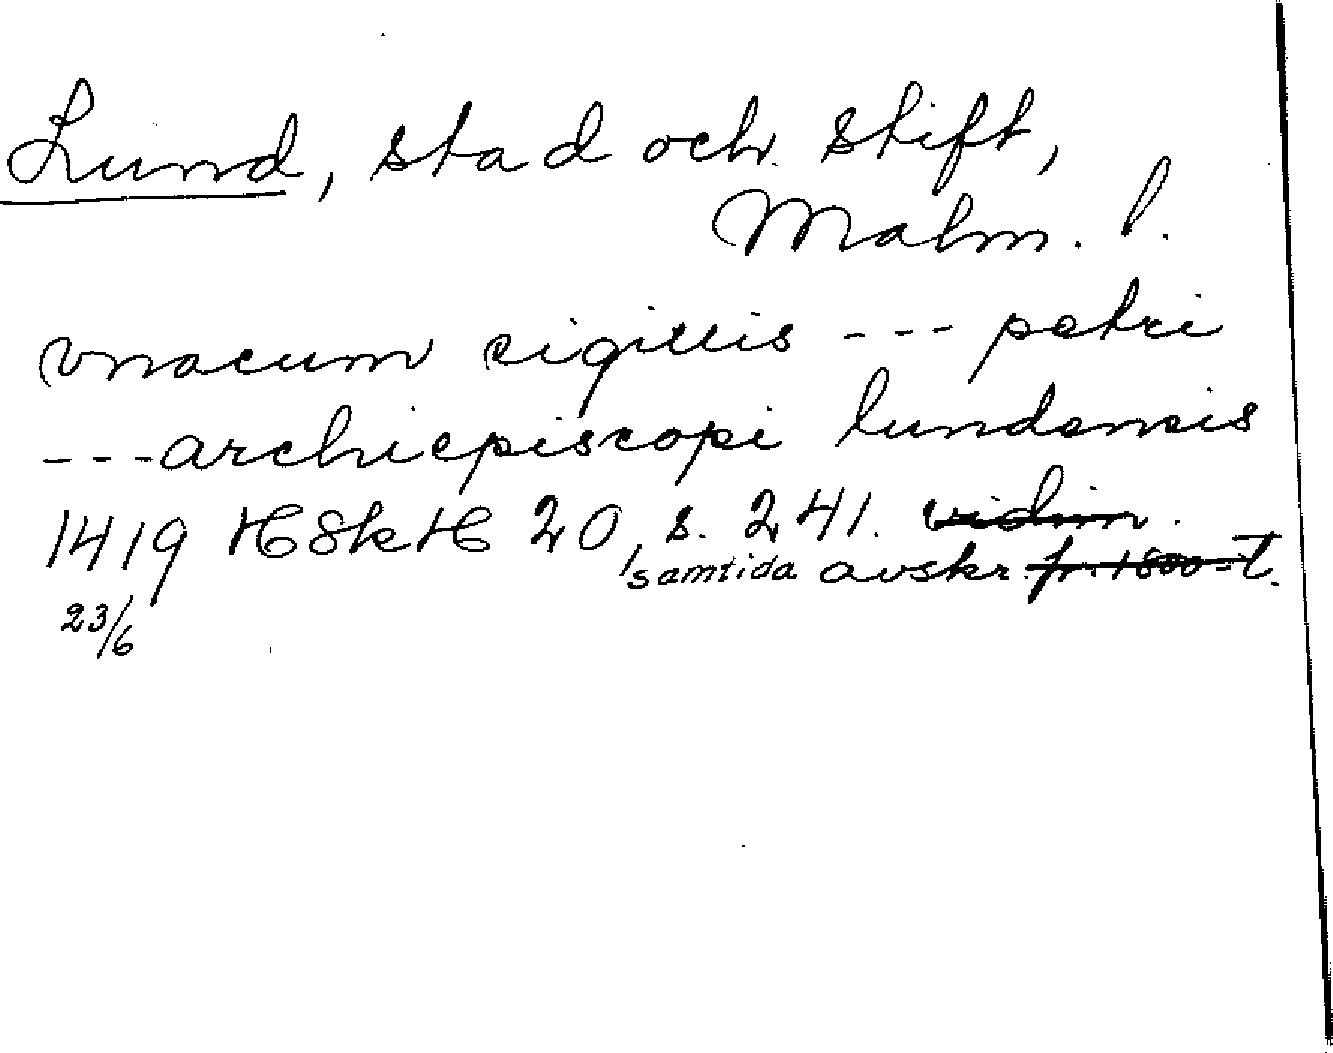 Lund, stad och stift,
Malm. l.
vnacum sigillis --- petri
--- archiepiscopi lundensis
1419 HSkH 20, s. 241. vidim.
samtida avskr. fr. 1800-t.
23/6